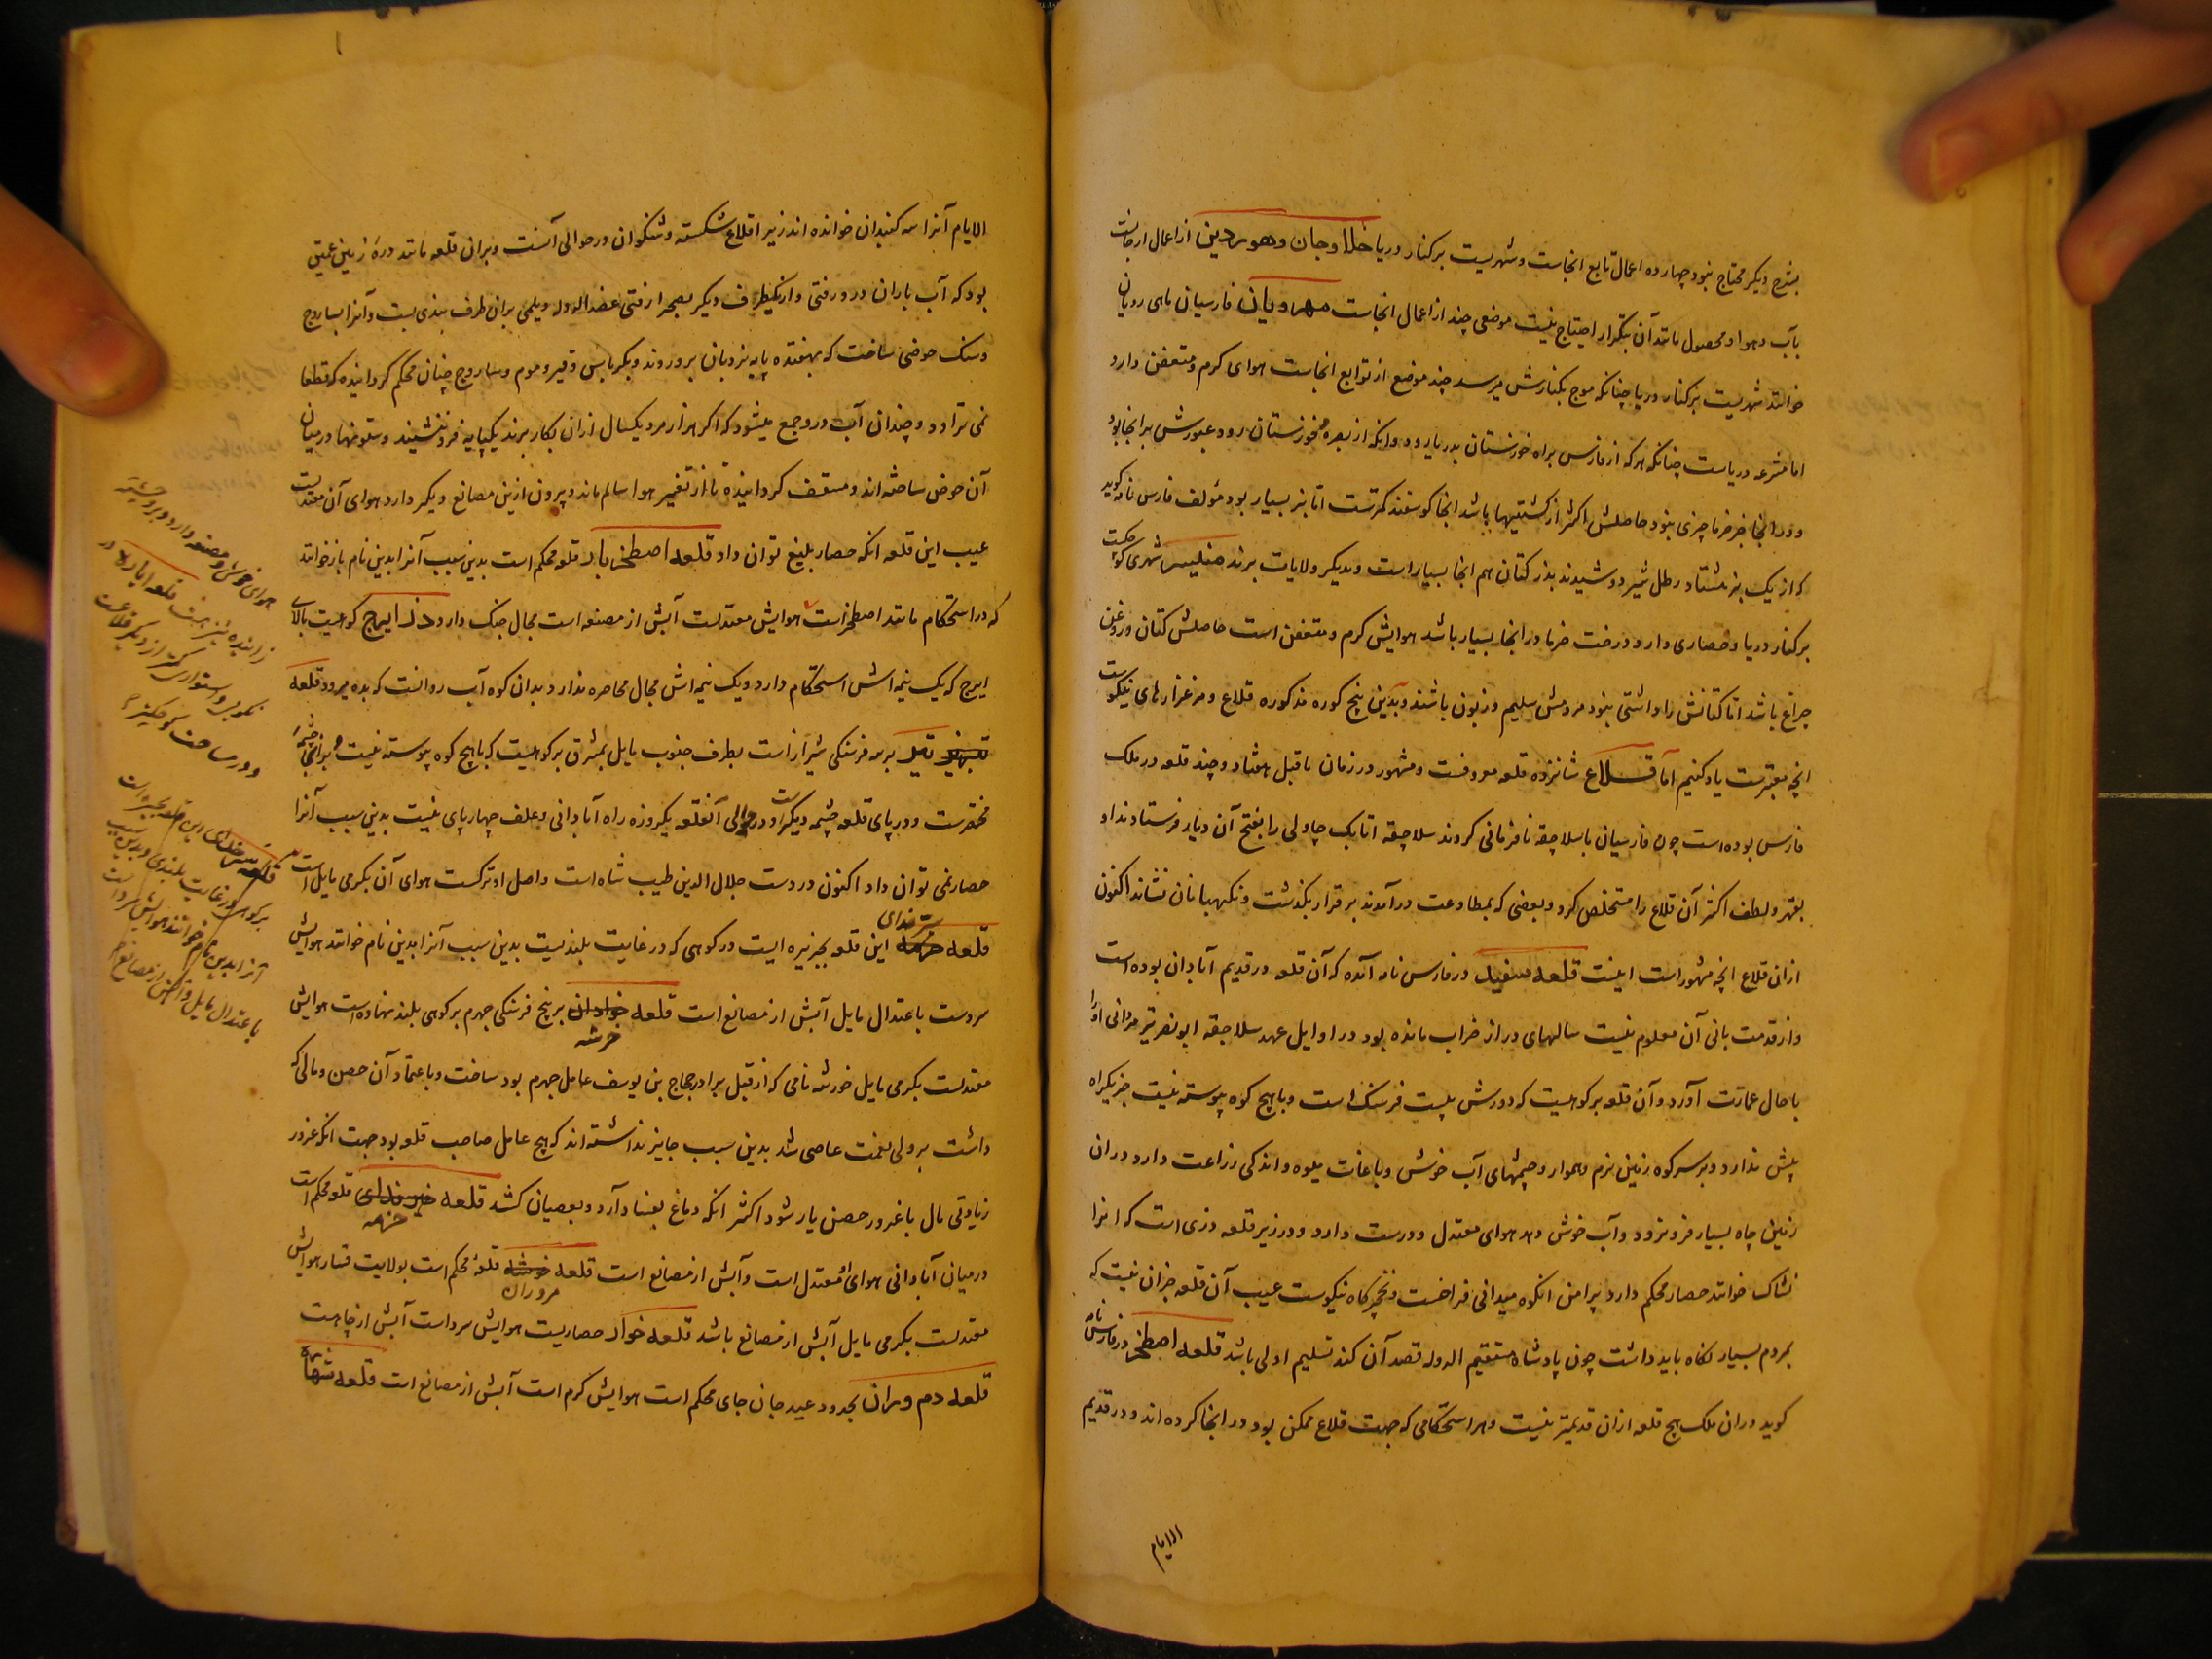 بشرح دیکر محتاج نبود چهارده اعمال تابع انجاست و شهریست بر کنار دریا جلادجان وهوردین از اعمال ارجانست
بآب و هوا و محصول مانند آن بتکرار احتیاج نیست موضعی چند از اعمال انجاست مهرویان فارسیان ماهی رویان
خوانند شهریست بر کنار دریا چنانکه موج بکنارش میرسد چند موضع از توابع انجاست هوای کرم و متعفن دارد
اما مشرعه دریاست چنانکه هر که از فارس براه خوزستان بدریا رود وانکه از بصره و خوزستان رود عبورش برانجا بود
ودرانجا جز خرما چیزی نبود حاصلش اکثر از کشتیها باشد انجا کوسفند کمترست اما بز بسیار بود مؤلف فارس نامه کوید
که از یک بز هشتاد رطل شیر دوشیدند بذر کتان هم انجا بسیار است و بدیکر ولایات برند جنلیس شهری کوچکست
بر کنار دریا و حصاری دارد درخت خرما درانجا بسیار باشد هوایش کرم و متعفن است حاصلش کتان و روغن
چراغ باشد اما کتانش را داشتی نبود مردمش سلیم و زبون باشند وبدین پنج کوره مذکوره قلاع و مرغزارهای نیکوست
انچه معتبرست یاد کنیم اما قلاع شانزده قلعه معروفست و مشهور در زمان ماقبل هفتاد و چند قلعه در ملک
فارس بوده است چون فارسیان با سلاجقه نافرمانی کردند سلاجقه اتابک چاولی را بفتح آن دیار فرستادند او
بقهر و لطف اکثر آن قلاع را مستخلص کرد و بعضی که بمطاوعت درآمدند برقرار بکذشت ونکهبانان نشاند اکنون
ازان قلاع انچه مشهور است اینست قلعه سفید در فارس نامه آمده که آن قلعه در قدیم آبادان بوده است
واز قدمت بانی آن معلوم نیست سالهای دراز خراب مانده بود در اوایل عهد سلاجقه ابونصر تیر مردانی اورا
باحال عمارت آورد و آن قلعه بر کوهیست که دورش بیست فرسنک است و باهیچ کوه پیوسته نیست جز یکراه
بیش ندارد و بر سر کوه زمین نرم و هموار و چشمهای آب خوش و باغات میوه و اندکی زراعت دارد دران
زمین چاه بسیار فرو نرود و آب خوش دهد هوای معتدل و درست دارد و در زیر قلعه دزی است که انرا
نشناک خوانند حصار محکم دارد پیرامن انکوه میدانی فراخست و نخچیرکاه نیکوست عیب آن قلعه جزان نیست که
بمردم بسیار نکاه باید داشت چون پادشاه مستقیم الدوله قصد آن کند تسلیم اولی باشد قلعه اصطخر در فارس نامه
کوید دران ملک هیچ قلعه ازان قدیمتر نیست و هر استحکامی که جهت قلاع ممکن بود درانجا کرده اند و در قدیم
الایام
الایام آنرا سه کنبدان خوانده اند زیرا قلاع شکسته و شنکوان در حوالی آنست وبران قلعه مانند درهٔ زمین عمیق
بود که آب باران درو رفتی واز یکطرف دیکر بصحرا رفتی عضد الدوله دیلمی بران طرف بندی بست و آنرا بساروج
و سنک حوضی ساخت که بهفتده پایه نردبان برو روند وبکرباس وقیر و موم و ساروج چنان محکم کردانیده که قطعا
نمی تراود و چندان آب درو جمع میشود که اکر هزار مرد یکسال ازان بکار برند یکپایه فرو ننشیند وستونها درمیان
آن حوض ساخته اند و مسقف کردانیده تا از تغییر هوا سالم ماند و بیرون ازین مصانع دیکر دارد هوای آن معتدلست
عیب این قلعه انکه حصار بلیغ توان داد قلعه اصطخر یار قلعه محکم است بدین سبب آنرا بدین نام باز خوانند
که در استحکام مانند اصطخر است هوایش معتدلست آبش از مصنعه است مجال جنک دارد دز ایرج کوهیست بالای
ایرج که یک نیمه اش استحکام دارد ویک نیمه اش مجال محاصره ندارد بدان کوه آب روانست که بده میرود قلعه
تیر بر سه فرسنکی شیراز است بطرف جنوب مایل بمشرق بر کوهیست که باهیچ کوه پیوسته نیست و برانجا چشمهٔ
مختصرست ودر پای قلعه چشمه دیکرست و در حوالی آنقلعه یکروزه راه آبادانی و علف چهارپای نیست بدین سبب آنرا
حصار نمی توان داد اکنون در دست جلال الدین طیب شاه است و اصل او ترکست هوای آن بکرمی مایل است
قلعه تیرخدای این قلعه بجزیره ایست در کوهی که در غایت بلندیست بدین سبب آنرا بدین نام خوانند هوایش
سردست باعتدال مایل آبش از مصانع است قلعه خرشه بر پنج فرسنکی جهرم بر کوهی بلند نهاده است هوایش
معتدلست بکرمی مایل خورشه نامی که از قبل برادر حجاج بن یوسف عامل جهرم بود ساخت و باعتماد آن حصن و مالی که
داشت بر ولی نعمت عاصی شد بدین سبب جایز نداشته اند که هیچ عامل صاحب قلعه بود جهت انکه غرور
زیادتی مال با غرور حصن یار شود اکثر انکه دماغ بفساد آرد و بعصیان کشد قلعه خرمه قلعه محکم است
درمیان آبادانی هوای معتدل است و آبش از مصانع است قلعه مروران قلعهٔ محکم است بولایت فسار هوایش
معتدلست بکرمی مایل آبش از مصانع باشد قلعه خوار حصاریست هوایش سرد است آبش از چاهست
قلعه دم وران بحدود عیدجان جای محکم است هوایش کرم است آبش از مصانع است قلعه شهاره
هوای خوش و مصنعه دارد
قلعه آباده
قلعه تیرخدای این قلعه بجزیره است
بر کوهی در غایت بلندی وبدین سبب
آنرا بدین نام خوانند هوایش سرد است
باعتدال مایل و آبش از مصانع